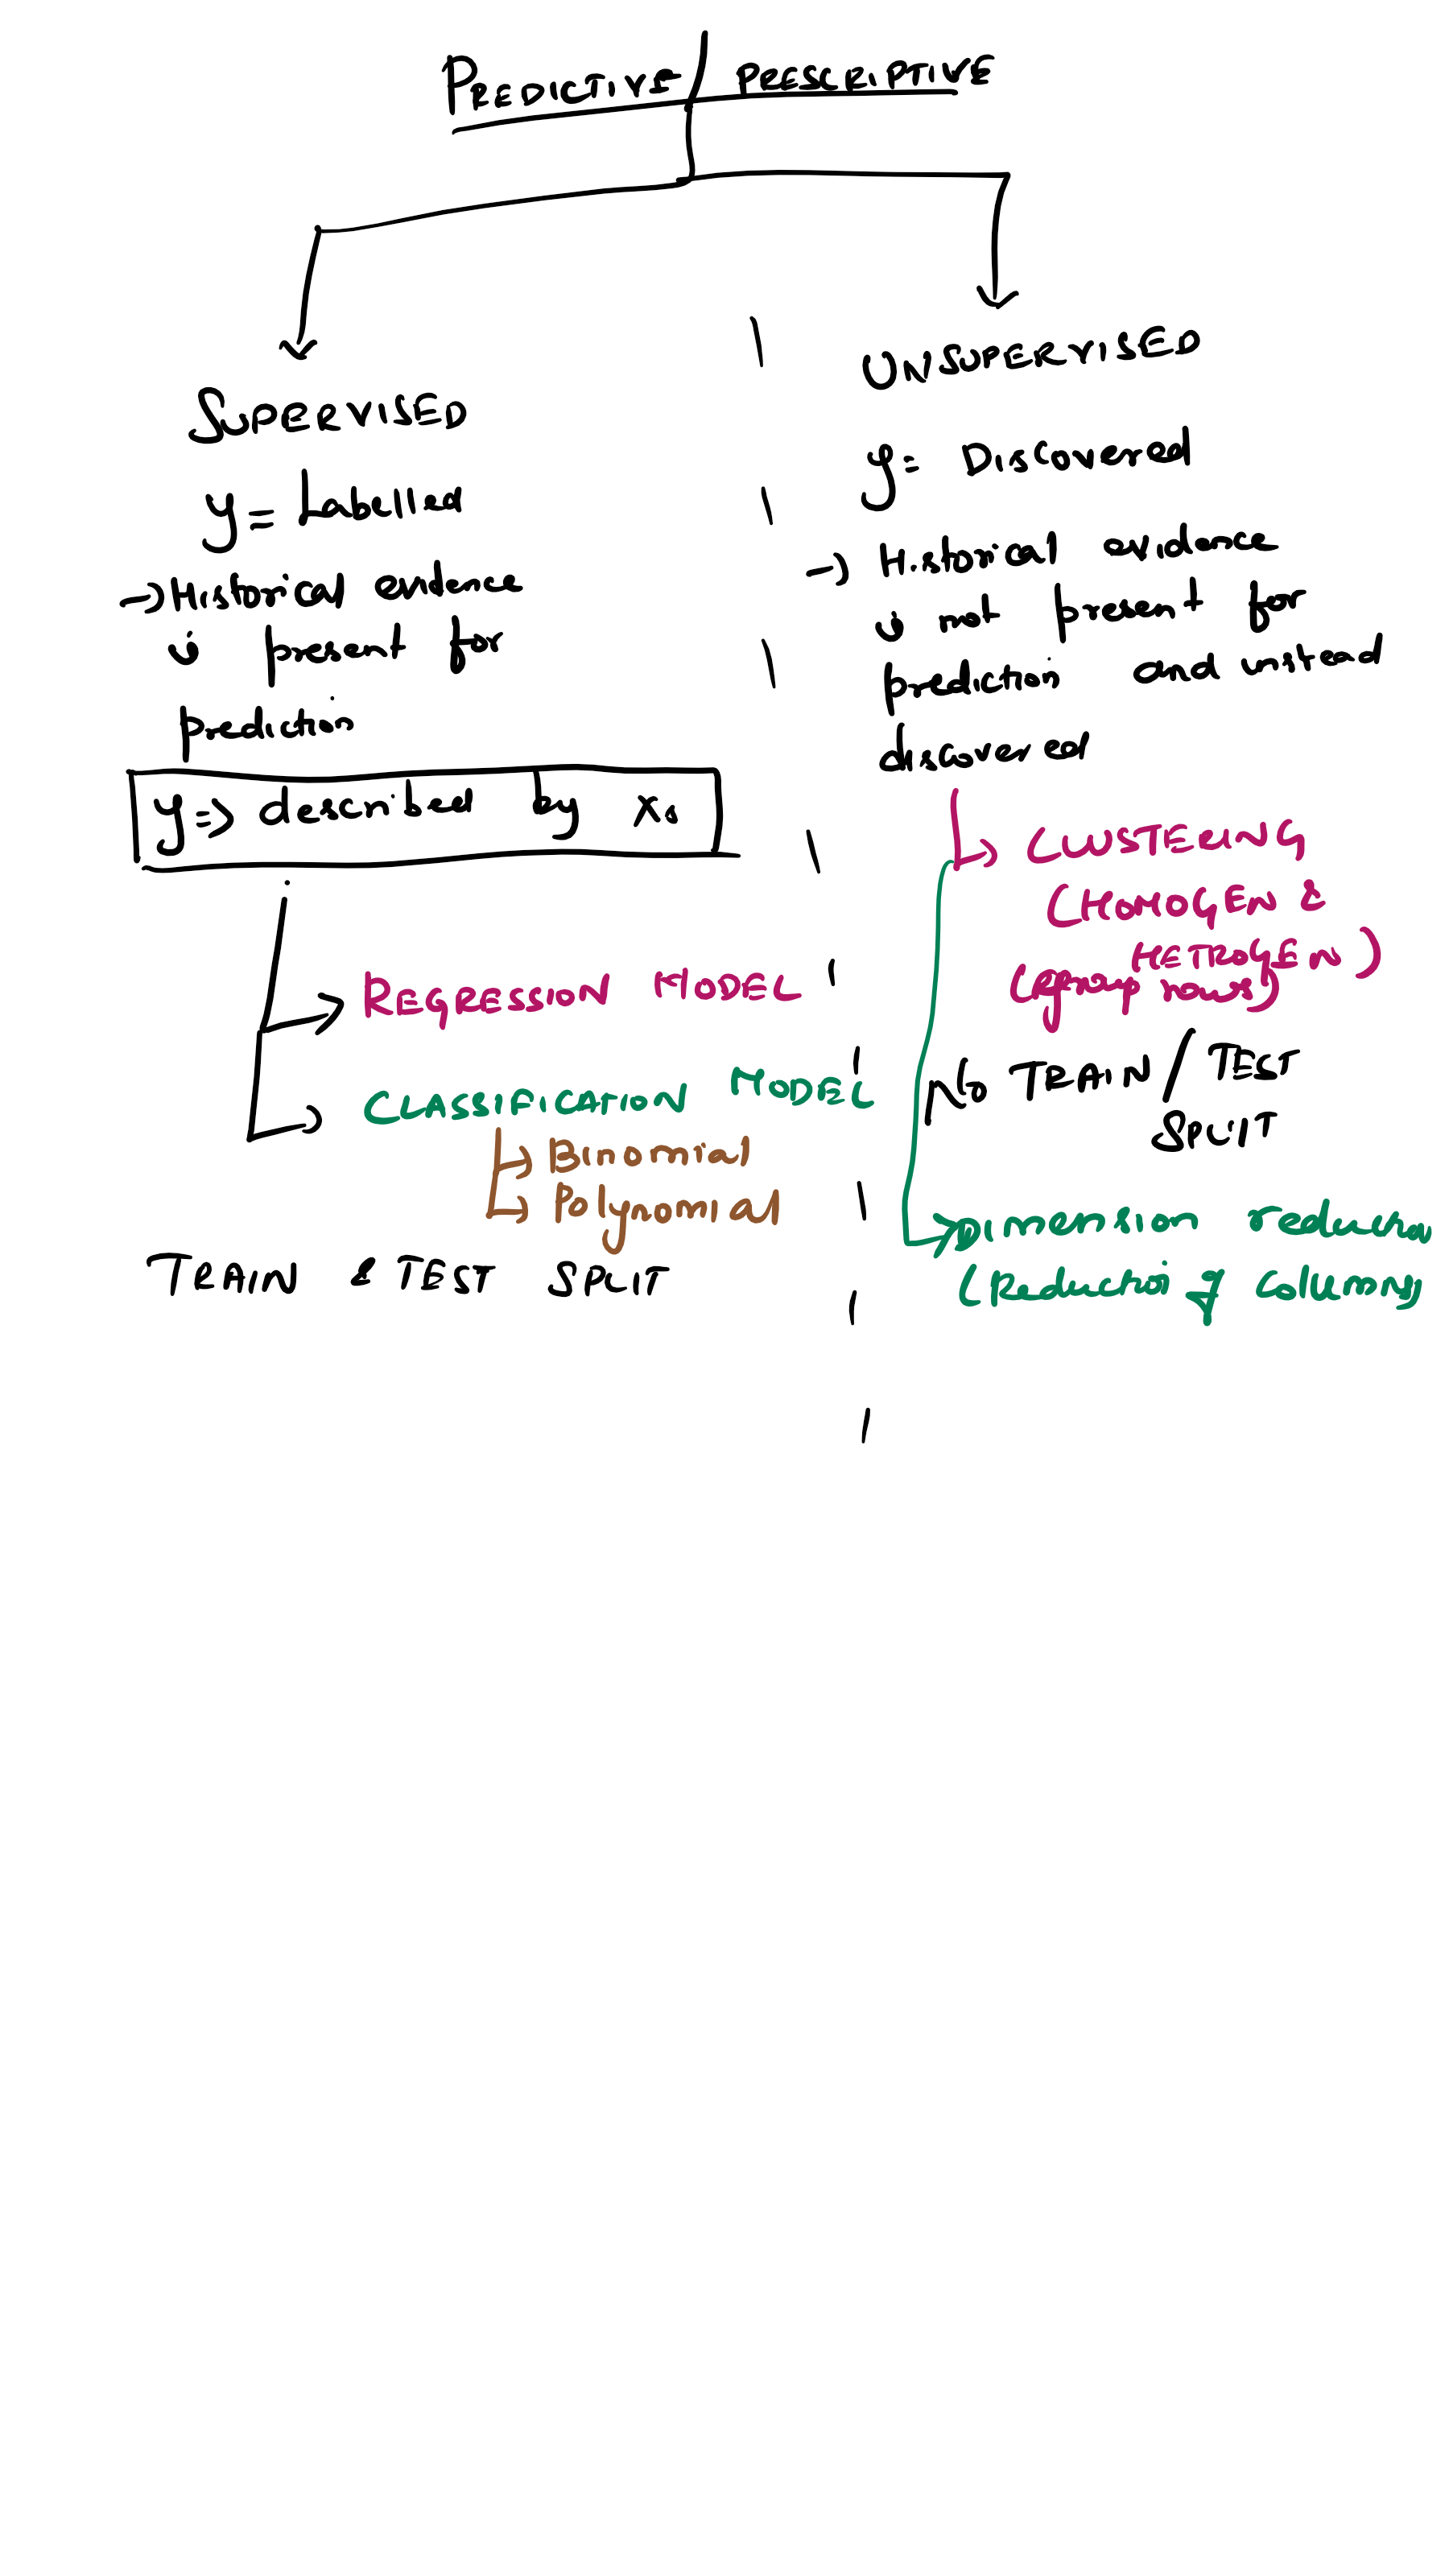 PREDICTIVE / PRESCRIPTIVE
SUPERVISED
y = Labelled
→ Historical evidence
is present for
prediction
y => described by xs
REGRESSION MODEL
CLASSIFICATION MODEL
Binomial
Polynomial
TRAIN & TEST SPLIT
UNSUPERVISED
y = Discovered
→ Historical evidence
is not present for
prediction and instead
discovered
CLUSTERING
(HOMOGEN &
HETROGEN)
(group rows)
No TRAIN / TEST
SPLIT
Dimension reduction
(Reduction of columns)